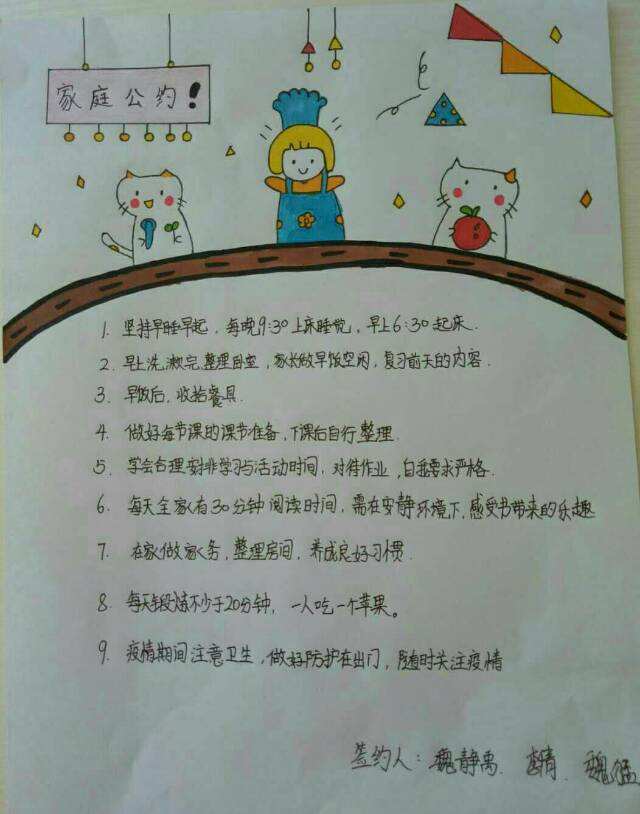 家庭公约！
1. 坚持早睡早起，每晚9:30上床睡觉，早上6:30起床.
2. 早上洗漱完整理卧室，家长做早饭空闲，复习前天的内容.
3. 早饭后，收拾餐具.
4. 做好每节课的课节准备，下课后自行整理.
5. 学会合理安排学习与活动时间，对待作业，自我要求严格.
6. 每天全家有30分钟阅读时间，需在安静环境下，感受书带来的乐趣
7. 在家做家务，整理房间，养成良好习惯.
8. 每天锻炼不少于20分钟，一人吃一个苹果。
9. 疫情期间注意卫生，做好防护在出门，随时关注疫情
签约人：魏静禹. 魏猛